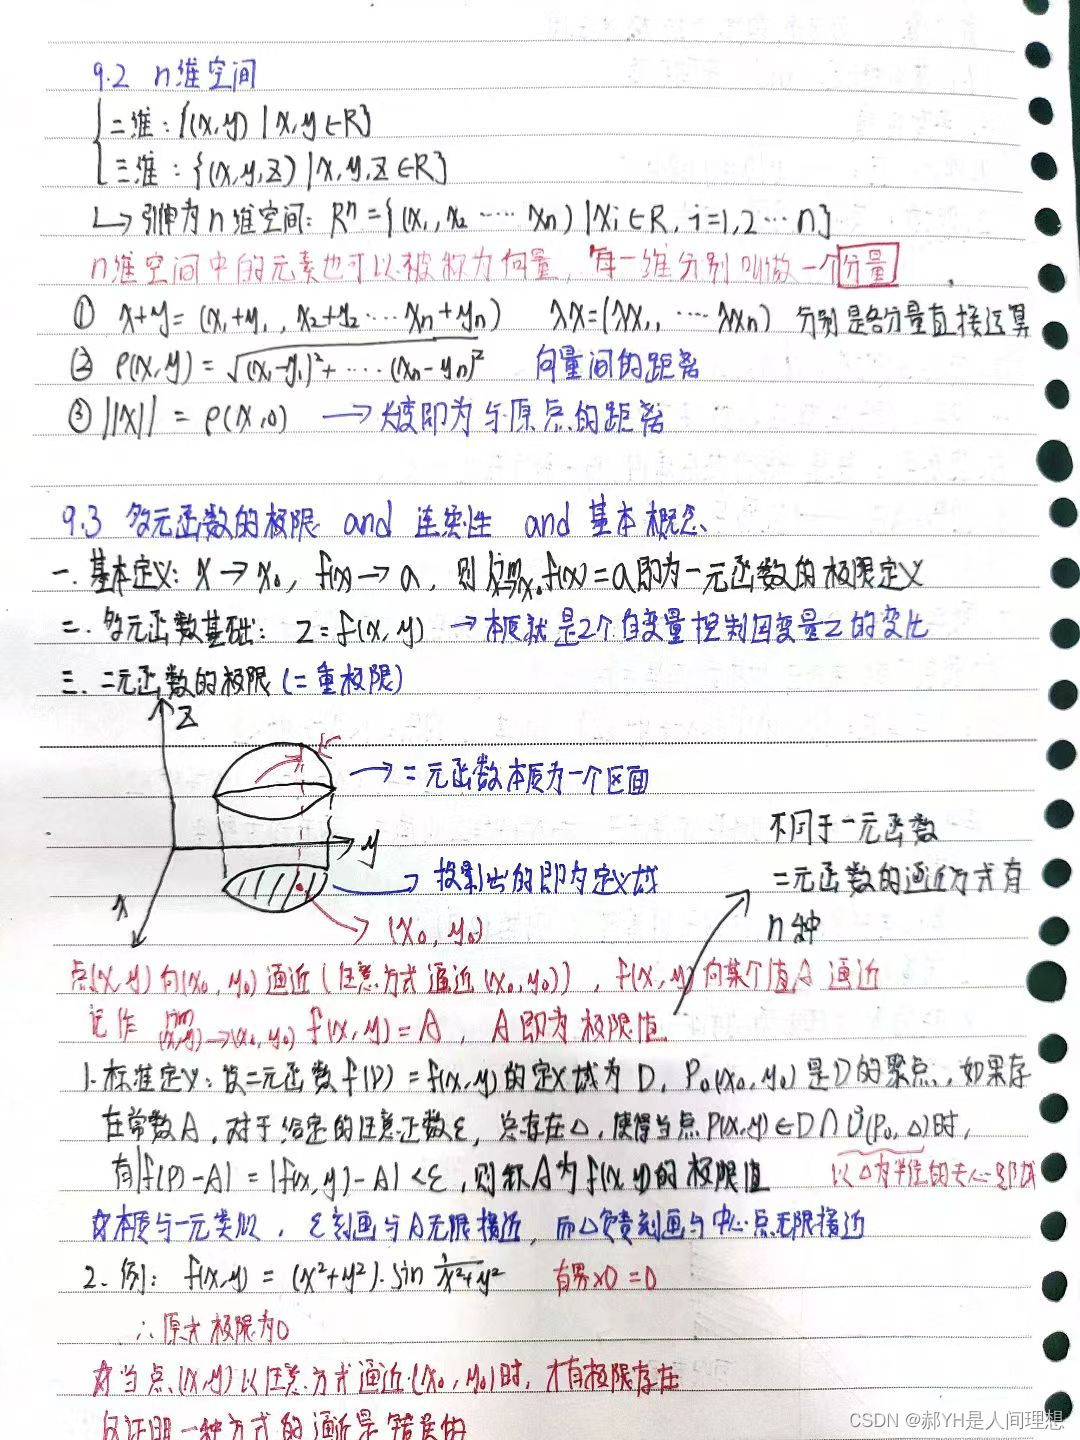 9.2 n维空间
二维：{(x,y) | x,y∈R}
三维：{(x,y,z) | x,y,z∈R}
↳ 引伸为n维空间：Rⁿ={(x₁,x₂ ····· xₙ) | xi∈R, i=1,2···n}
n维空间中的元素也可以被称为向量，每一维分别叫做一个分量
① x+y=(x₁+y₁, x₂+y₂ ···· xₙ+yₙ) λx=(λx₁, ···· λxₙ) 分别是各分量直接运算
② ρ(x,y)=√(x₁-y₁)²+····(xₙ-yₙ)² 向量间的距离
③ ||x|| = ρ(x,0) → 长度即为与原点的距离
9.3 多元函数的极限 and 连续性 and 基本概念
一. 基本定义：x→x₀, f(x)→a, 则 lim x→x₀ f(x)=a即为一元函数的极限定义
二. 多元函数基础：z=f(x,y) →本质就是2个自变量控制因变量z的变化
三. 二元函数的极限(二重极限)
z
→二元函数本质为一个区面
y
不同于一元函数
→投影出的即为定义域
二元函数的逼近方式有
x
n种
(x₀,y₀)
点(x,y)向(x₀,y₀)逼近(任意方式逼近(x₀,y₀)), f(x,y)向某个值A逼近
记作 lim (x,y)→(x₀,y₀) f(x,y)=A, A即为极限值
1. 标准定义：设二元函数f(P)=f(x,y)的定义域为D, P₀(x₀,y₀)是D的聚点, 如果存
在常数A, 对于给定的任意正数ε, 总存在△, 使得当点P(x,y)∈D∩Ů(P₀,△)时,
有|f(P)-A|=|f(x,y)-A|<ε, 则称A为f(x,y)的极限值 以△为半径的去心邻域
☆本质与一元类似, ε刻画与A无限接近, 而△负责刻画与中心点无限接近
2. 例：f(x,y)=(x²+y²)·sin 1/x²+y² 有界×0=0
∴原式极限为0
☆当点(x,y)以任意方式逼近(x₀,y₀)时, 才有极限存在
仅证明一种方式的逼近是错误的
CSDN @郝YH是人间理想